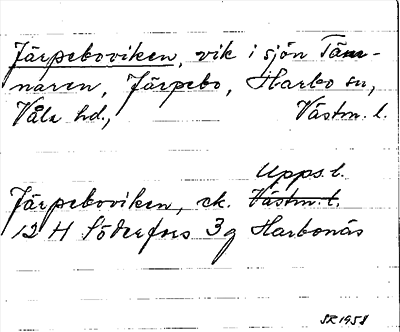 Järpeboviken, vik i sjön Täm-
naren, Järpebo, Harbo sn,
Våla hd., Västm. l.
Upps. l.
Järpeboviken, ek. Västm. l.
12 H Söderfors 3 g Harbonäs
SR 1958